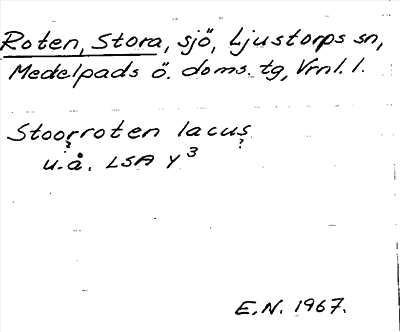 Roten, Stora, sjö, Ljustorps sn,
Medelpads ö. doms. tg, Vrnl. l.
Stoorroten lacus
u.å. LSA Y³
E.N. 1967.